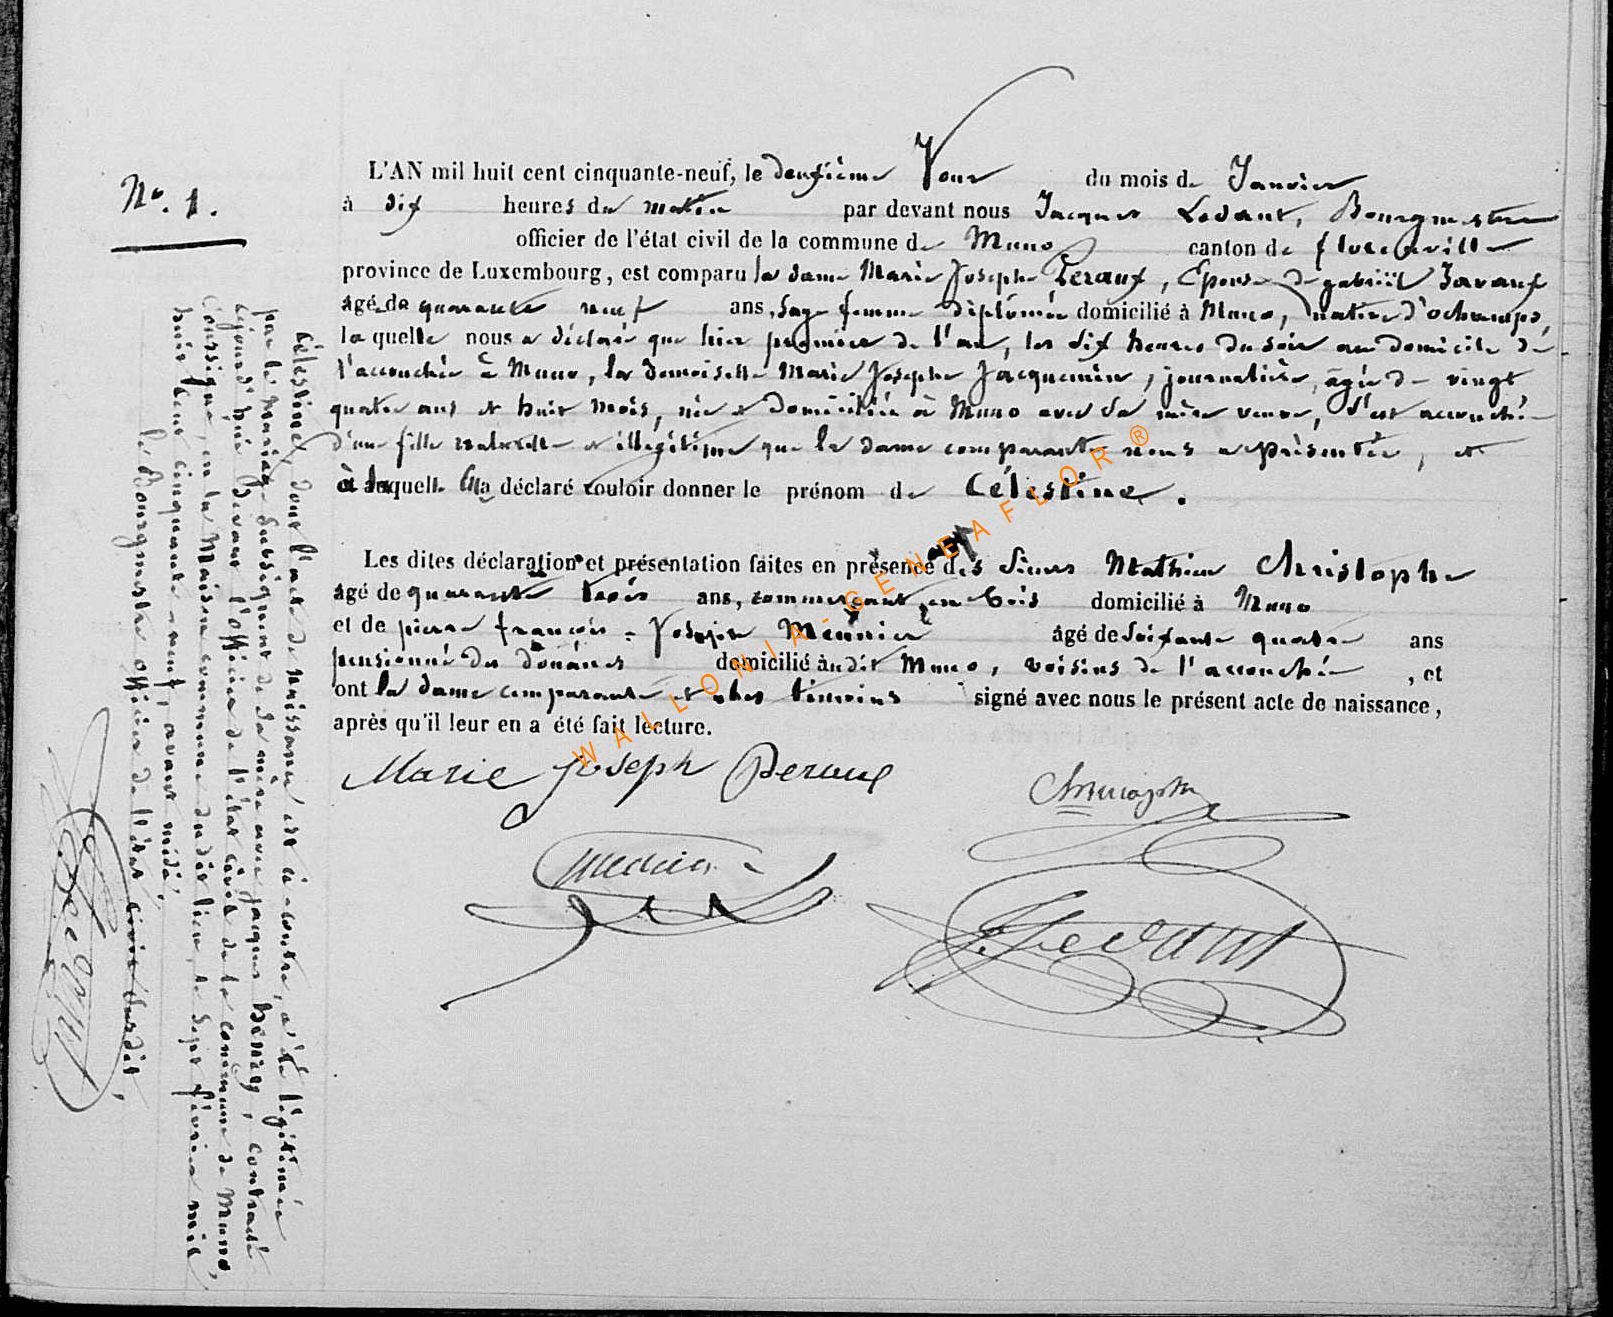 N°. 1.
L'AN mil huit cent cinquante-neuf, le deuxième Jour du mois de Janvier
à dix heures du matin par devant nous Jacques Ledant, Bourgmestre
officier de l'état civil de la commune de Muno canton de florenville
province de Luxembourg, est comparu la dame Marie Joseph Peraux, Epouse de gabriël Javaux
agé de quarante neuf ans, Sage femme diplômée domicilié à Muno, native d'ochamps,
la quelle nous a déclaré que hier premier de l'an, les dix heures du soir au domicile de
l'accouchée à Muno, la demoiselle Marie Joseph Jacquemin, journalière, âgée de vingt
quatre ans et huit mois, née et domiciliée à Muno avec sa mère veuve, s'est accouchée
d'une fille naturelle et illégitime que la dame comparante nous a présentée, et
à laquelle elle a déclaré vouloir donner le prénom de Célestine.
Les dites déclaration et présentation faites en présence des Sieurs Mathieu Christophe
agé de quarante trois ans, commerçant en bois domicilié à Muno
et de pierre françois - Joseph Meunier agé de soixante quatre ans
pensionné des douanes domicilié àudit Muno, voisins de l'accouchée, et
ont la dame comparante et les témoins signé avec nous le présent acte de naissance,
après qu'il leur en a été fait lecture.
Marie Joseph Peraux
Christophe
Meunier
J. Ledant
Célestine, dont l'acte de naissance est ci-contre, a été légitimée
par le mariage subséquent de sa mère avec jacques henry, contracté
aujourd'hui devant l'officier de l'état civil de la commune de Muno,
soussigné, en la Maison commune dudit lieu, le sept février mil
huit cent cinquante-neuf, avant midi,
le Bourgmestre officier de l'état civil susdit,
J. Ledant
WALLONIA-GENEAFLOR®